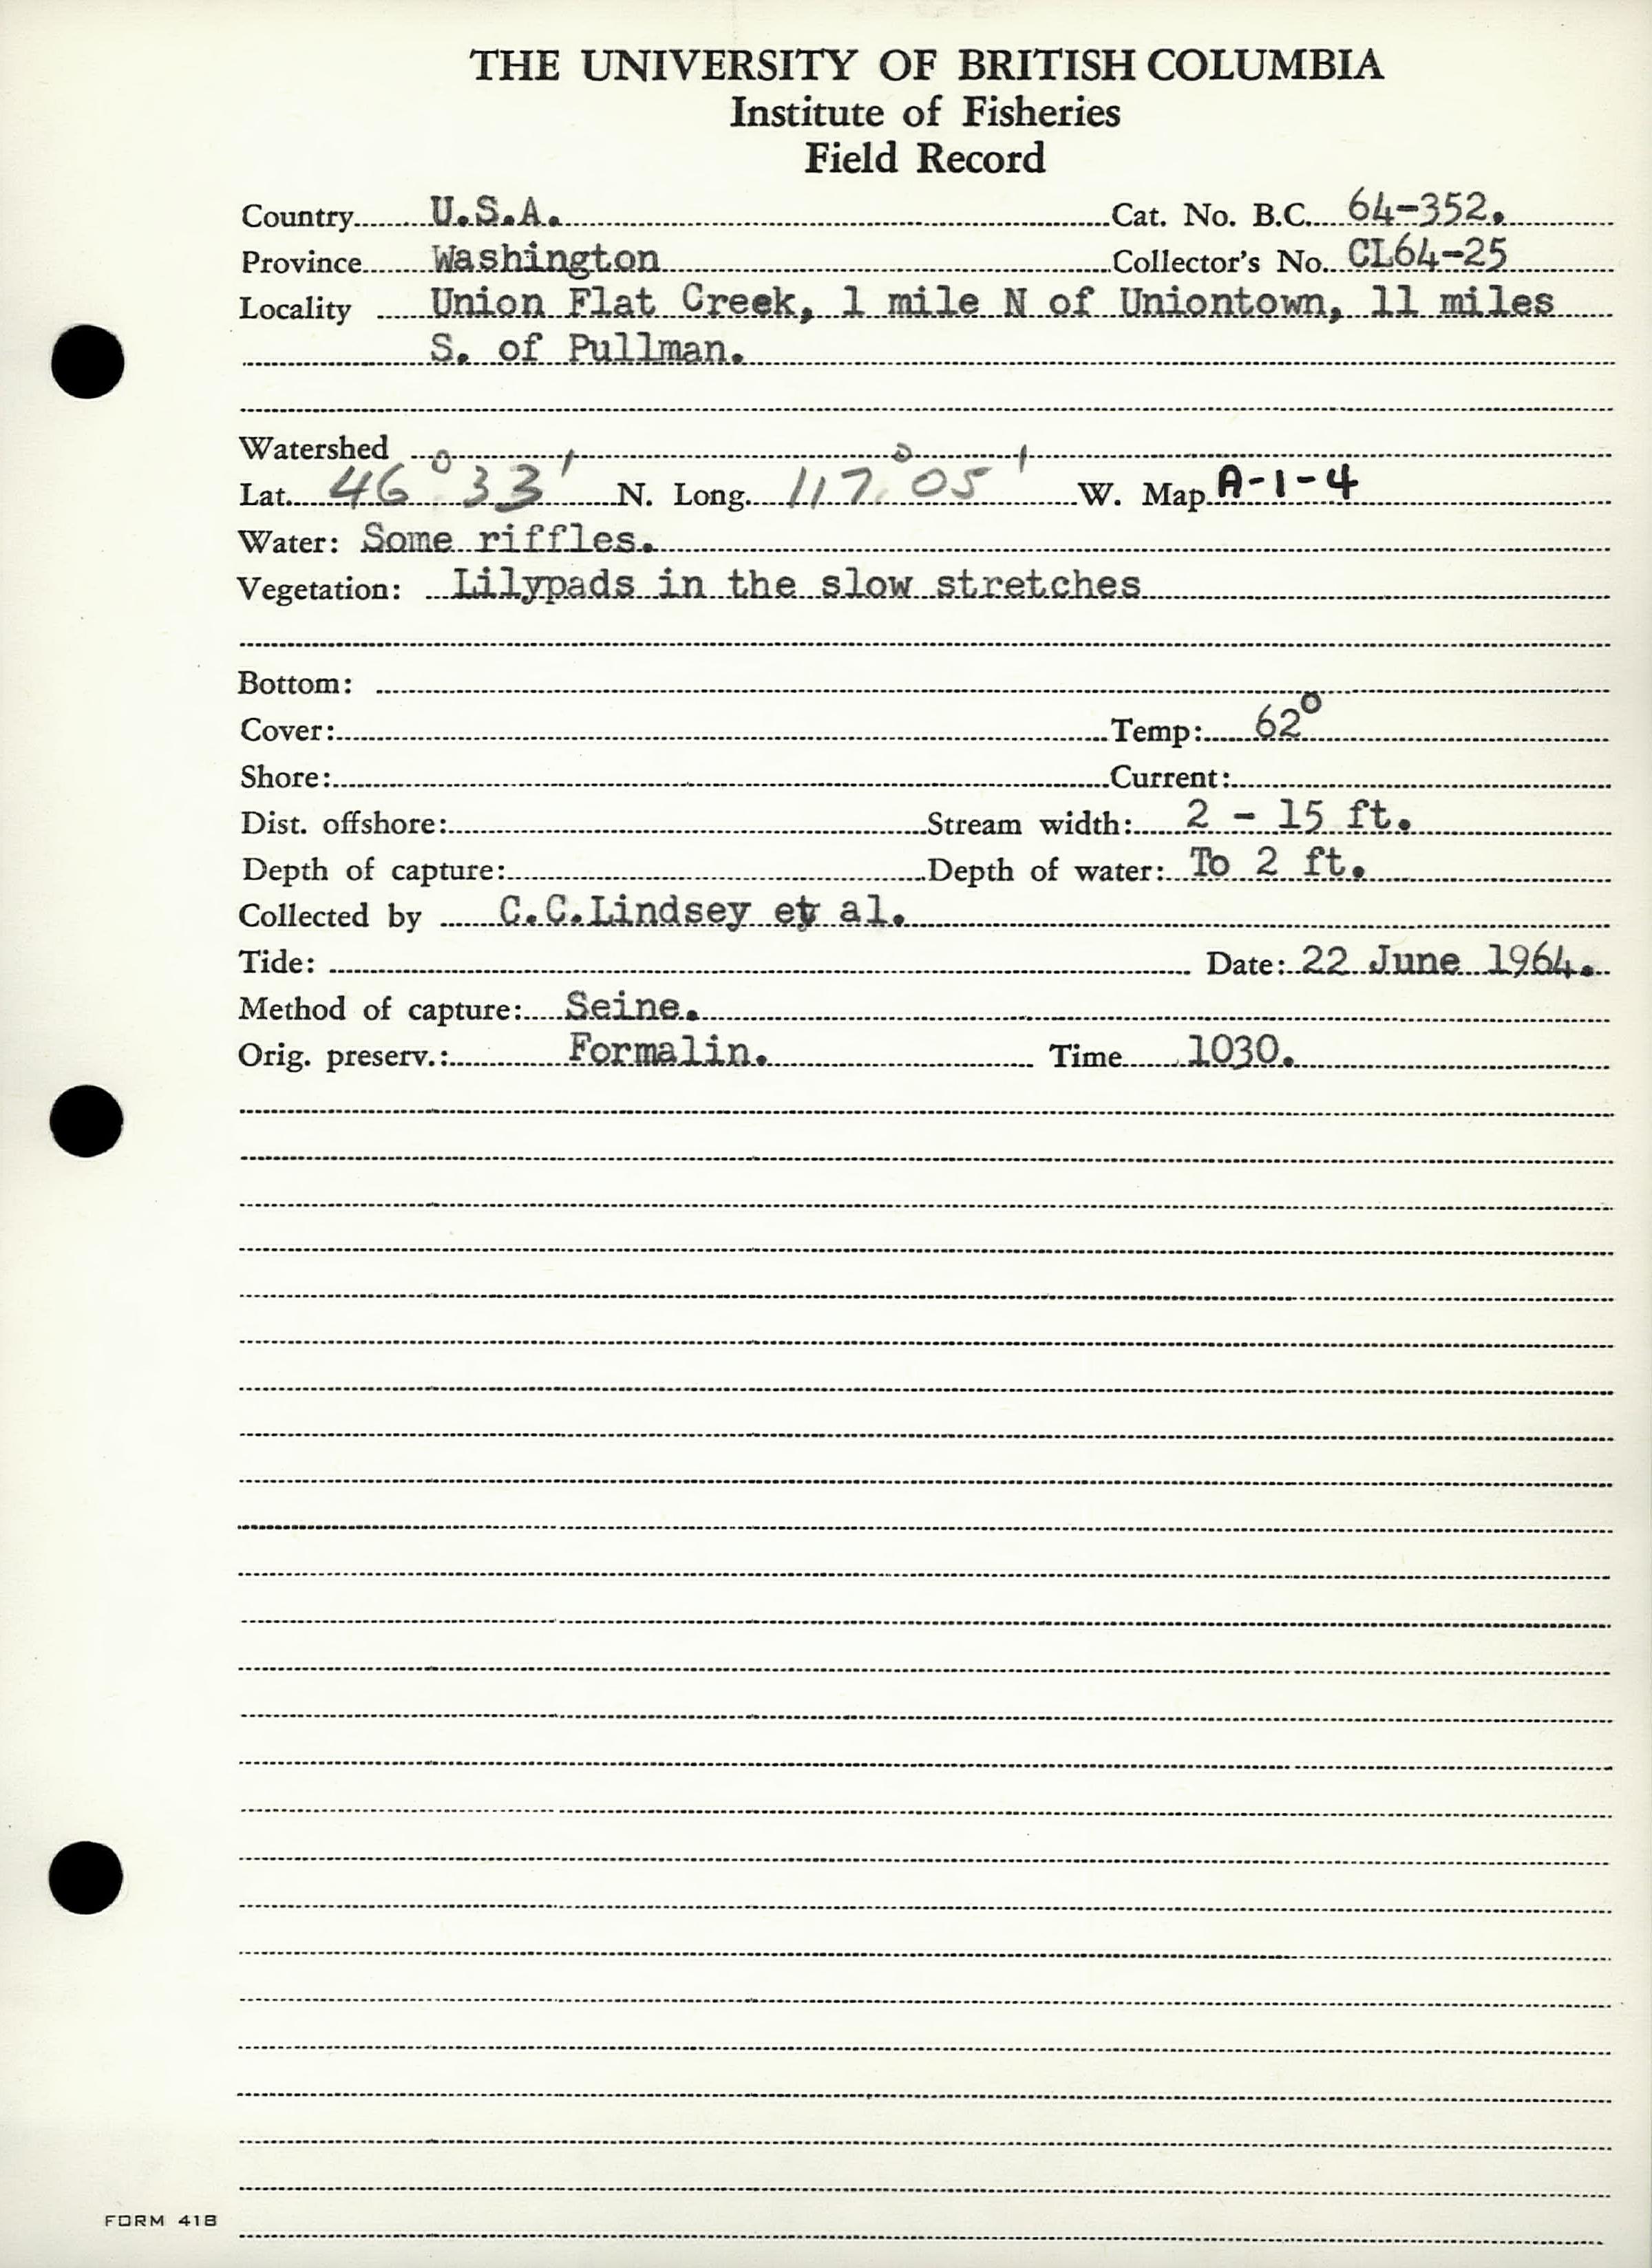 THE UNIVERSITY OF BRITISH COLUMBIA
Institute of Fisheries
Field Record
Country U.S.A. Cat. No. B.C. 64-352.
Province Washington Collector's No. CL64-25
Locality Union Flat Creek, 1 mile N of Uniontown, 11 miles
S. of Pullman.
Watershed
Lat. 46° 33' N. Long. 117° 05' W. Map A-1-4
Water: Some riffles.
Vegetation: Lilypads in the slow stretches
Bottom:
Cover: Temp: 62°
Shore: Current:
Dist. offshore: Stream width: 2 - 15 ft.
Depth of capture: Depth of water: To 2 ft.
Collected by C.C.Lindsey et al.
Tide: Date: 22 June 1964.
Method of capture: Seine.
Orig. preserv.: Formalin. Time 1030.
FORM 418